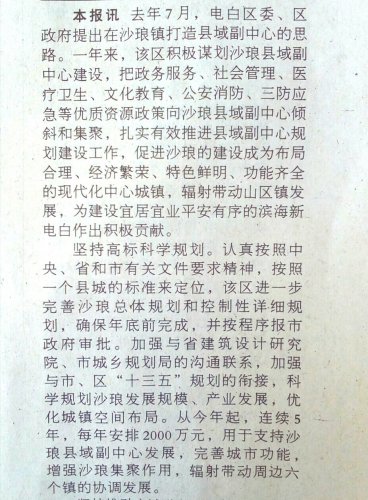 本报讯 去年7月，电白区委、区
政府提出在沙琅镇打造县域副中心的思
路。一年来，该区积极谋划沙琅县域副
中心建设，把政务服务、社会管理、医
疗卫生、文化教育、公安消防、三防应
急等优质资源政策向沙琅县域副中心倾
斜和集聚，扎实有效推进县域副中心规
划建设工作，促进沙琅的建设成为布局
合理、经济繁荣、特色鲜明、功能齐全
的现代化中心城镇，辐射带动山区镇发
展，为建设宜居宜业平安有序的滨海新
电白作出积极贡献。
坚持高标科学规划。认真按照中
央、省和市有关文件要求精神，按照
一个县城的标准来定位，该区进一步
完善沙琅总体规划和控制性详细规
划，确保年底前完成，并按程序报市
政府审批。加强与省建筑设计研究
院、市城乡规划局的沟通联系，加强
与市、区“十三五”规划的衔接，科
学规划沙琅发展规模、产业发展，优
化城镇空间布局。从今年起，连续5
年，每年安排2000万元，用于支持沙
琅县域副中心发展，完善城市功能，
增强沙琅集聚作用，辐射带动周边六
个镇的协调发展。